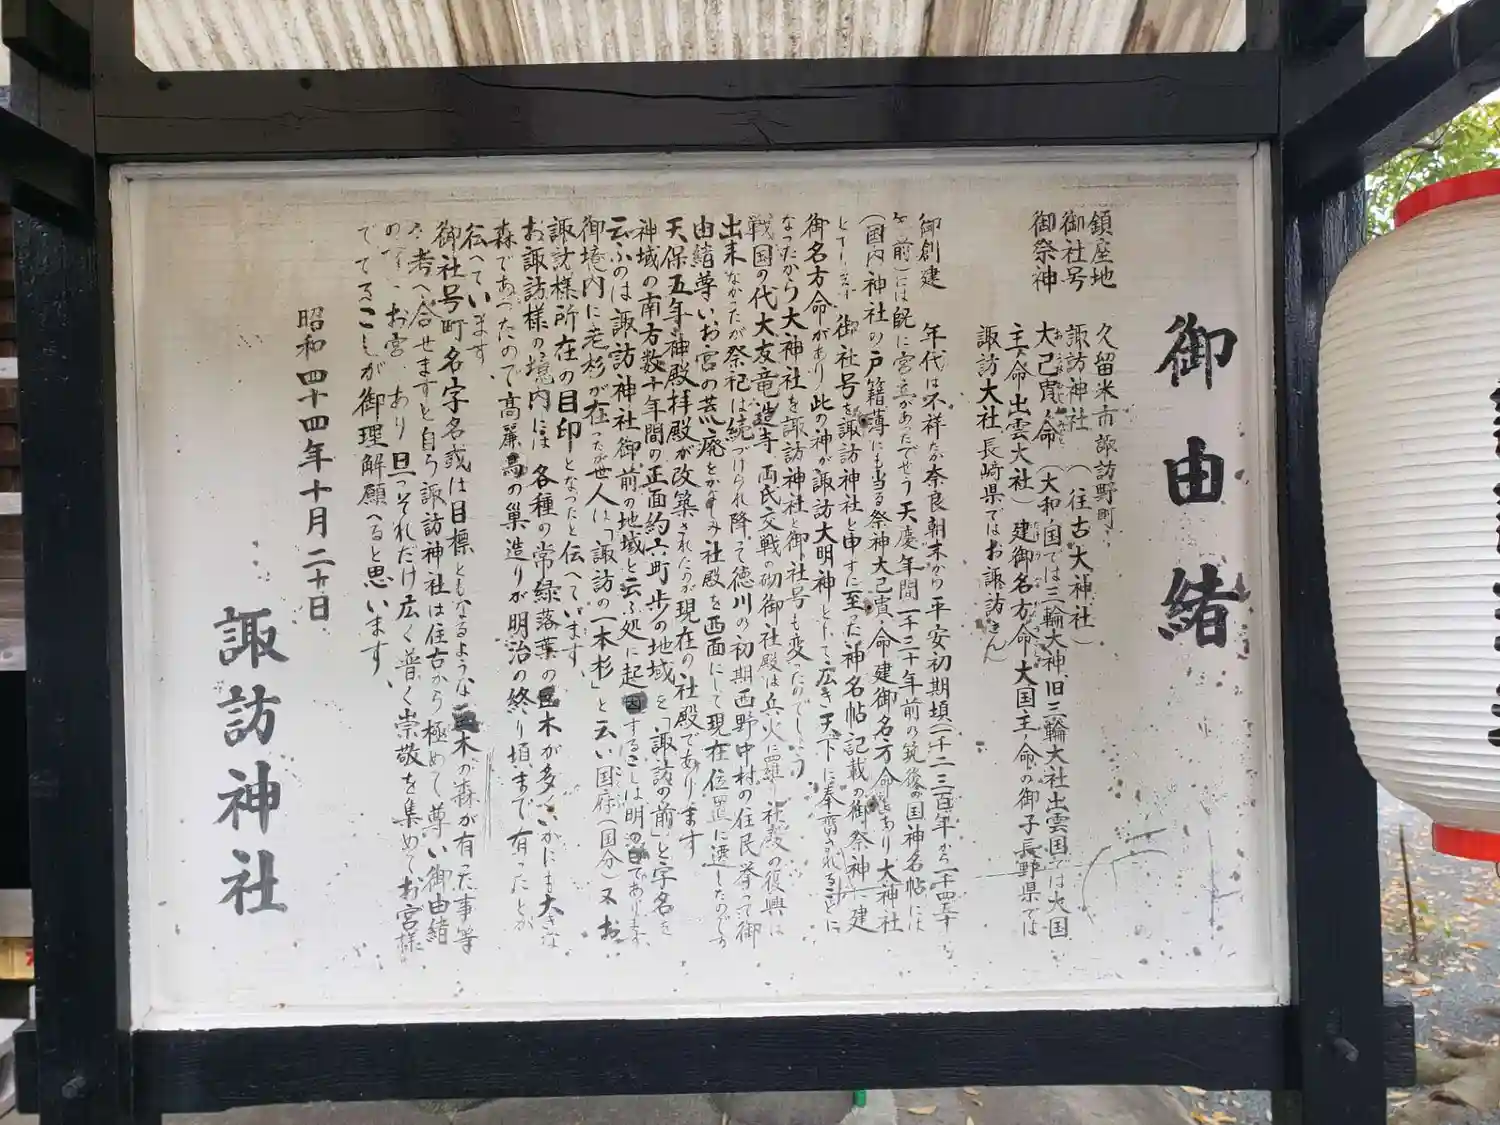 御由緒
鎮座地 久留米市諏訪野町
御社号 諏訪神社 (往古大神社)
御祭神 大己貴命 (大和国では三輪大神 旧三輪大社出雲国では大国
主命出雲大社) 建御名方命 大国主命の御子 長野県では
諏訪大社 長崎県ではお諏訪さん)
御創建 年代は不祥だが奈良朝末から平安初期頃(千二三百年から
前)には既に宮立があったでせう 天慶年間(千三十年前の筑後の国神名帖には
(国内神社の戸籍薄にも当る祭神大己貴命建御名方命とあり大神社
御社号を諏訪神社と申すに至った神名帖記載の御祭神に建
御名方命があり此の神が諏訪大明神として広き天下に奉齋されることに
なったから大神社を諏訪神社と御社号も変ったのでしょう
戦国の代大友竜造寺両氏交戦の砌御社殿は兵火に罹り社殿の復興は
出来なかったが祭祀は続づけられ降って徳川の初期西野中村の住民挙って御
由緒尊いお宮の荒廃をかなしみ社殿を西面にして現在位置に遷したのです
天保五年神殿拝殿が改築されたのが現在の社殿であります
神域の南方数十年間の正面約六町歩の地域を「諏訪の前」と字名を
云ふのは諏訪神社御前の地域と云ふ処に起因することは明白であります
御境内に老杉が在ったが世人は「諏訪の一本杉」と云い国府(国分)又お
諏訪様所在の目印となったと伝へています
お諏訪様の境内には各種の常緑落葉の木が多くいかにも大きな
森であったので高麗烏の巣造りが明治の終り頃まで有ったとか
伝へています
御社号町名字名或は目標ともなるような木の森が有った事等
考へ合せますと自ら諏訪神社は往古から極めて尊い御由緒
お宮であり且つそれだけ広く普く崇敬を集めてお宮様
であることが御理解願へると思います
昭和四十四年十月二十日
諏訪神社